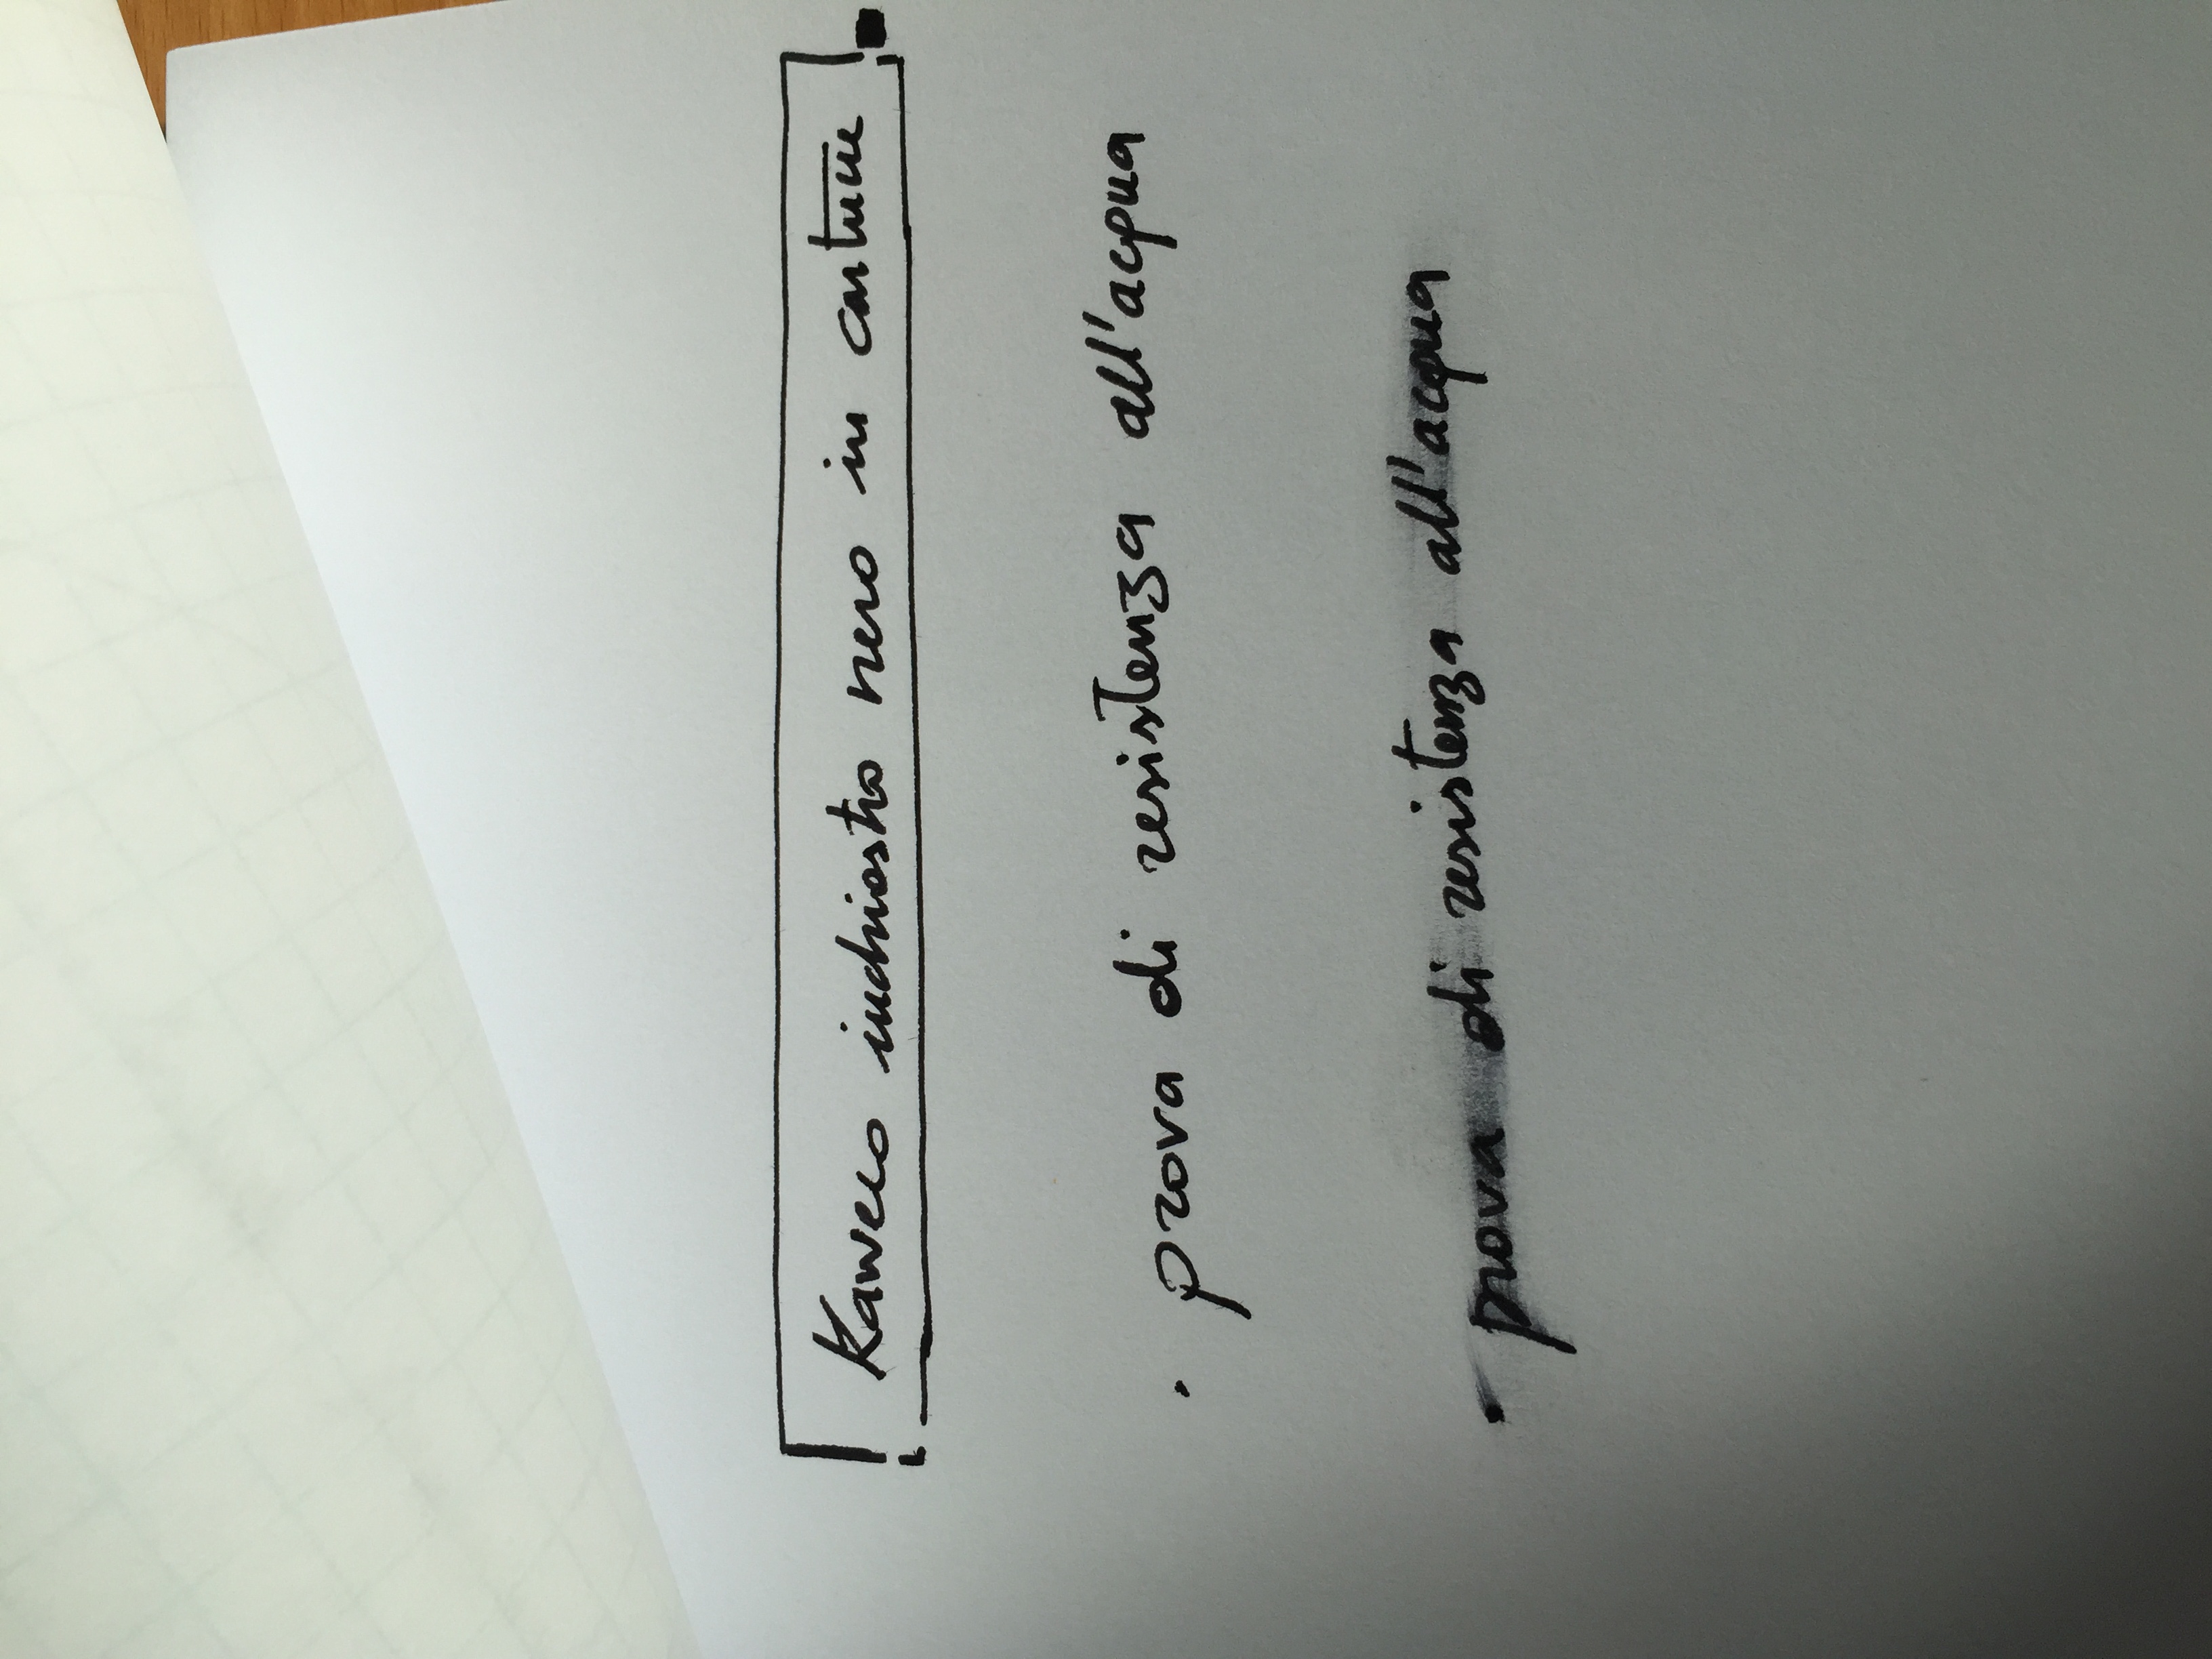 Kaweco inchiostro nero in cartucce
· prova di resistenza all'acqua
· prova di resistenza all'acqua